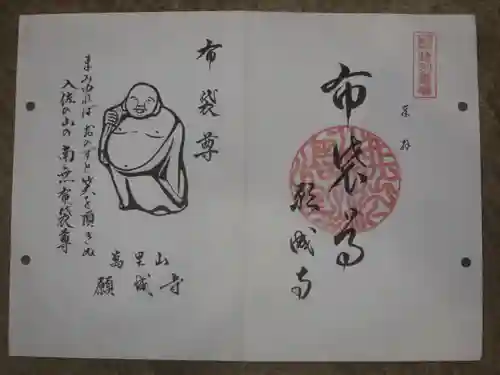 奉拝
布袋尊
願成寺
布袋尊
まみゆれば おのずと笑を頂きぬ
入佐の山の 南無布袋尊
萬里山
願成寺